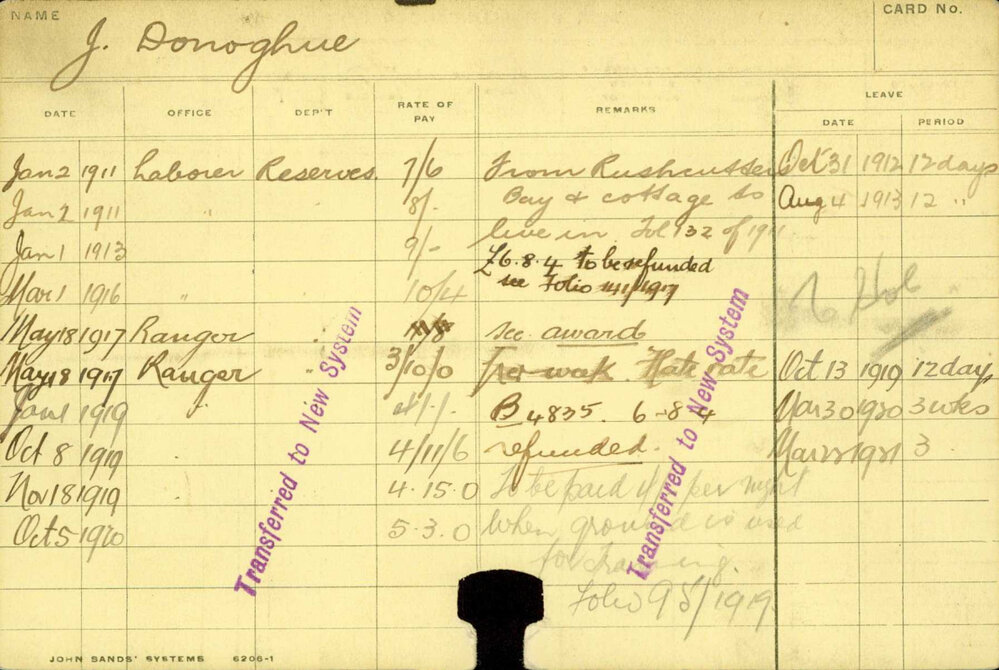 NAME
CARD No.
J. Donoghue
DATE OFFICE DEP'T RATE OF PAY REMARKS LEAVE
DATE PERIOD
Jan 2 1911 Laborer Reserves. 7/6 From Rushcutters Oct 31 1912 12 days
Jan 2 1911 " 8/- Bay & cottage to Aug 4 1913 12 "
Jan 1 1913 9/- live in. Fol 132 of 1911
£6.8.4 to be refunded
Mar 1 1916 " 10/4 see Folio 1917
May 18 1917 Ranger " see award
May 18 1917 Ranger " 3/10/0 per week. rate Oct 13 1919 12 days
1919 " 4/-/- B 4835. 6-8-4 Mar 30 1920 3 wks
Oct 8 1919 4/11/6 refunded. Mar 1921 3
Nov 18 1919 4.15.0 To be paid per night
Oct 5 1920 5.3.0 When ground is used
for training.
Folio 95/1919
Transferred to New System
Transferred to New System
JOHN SANDS' SYSTEMS 6206-1